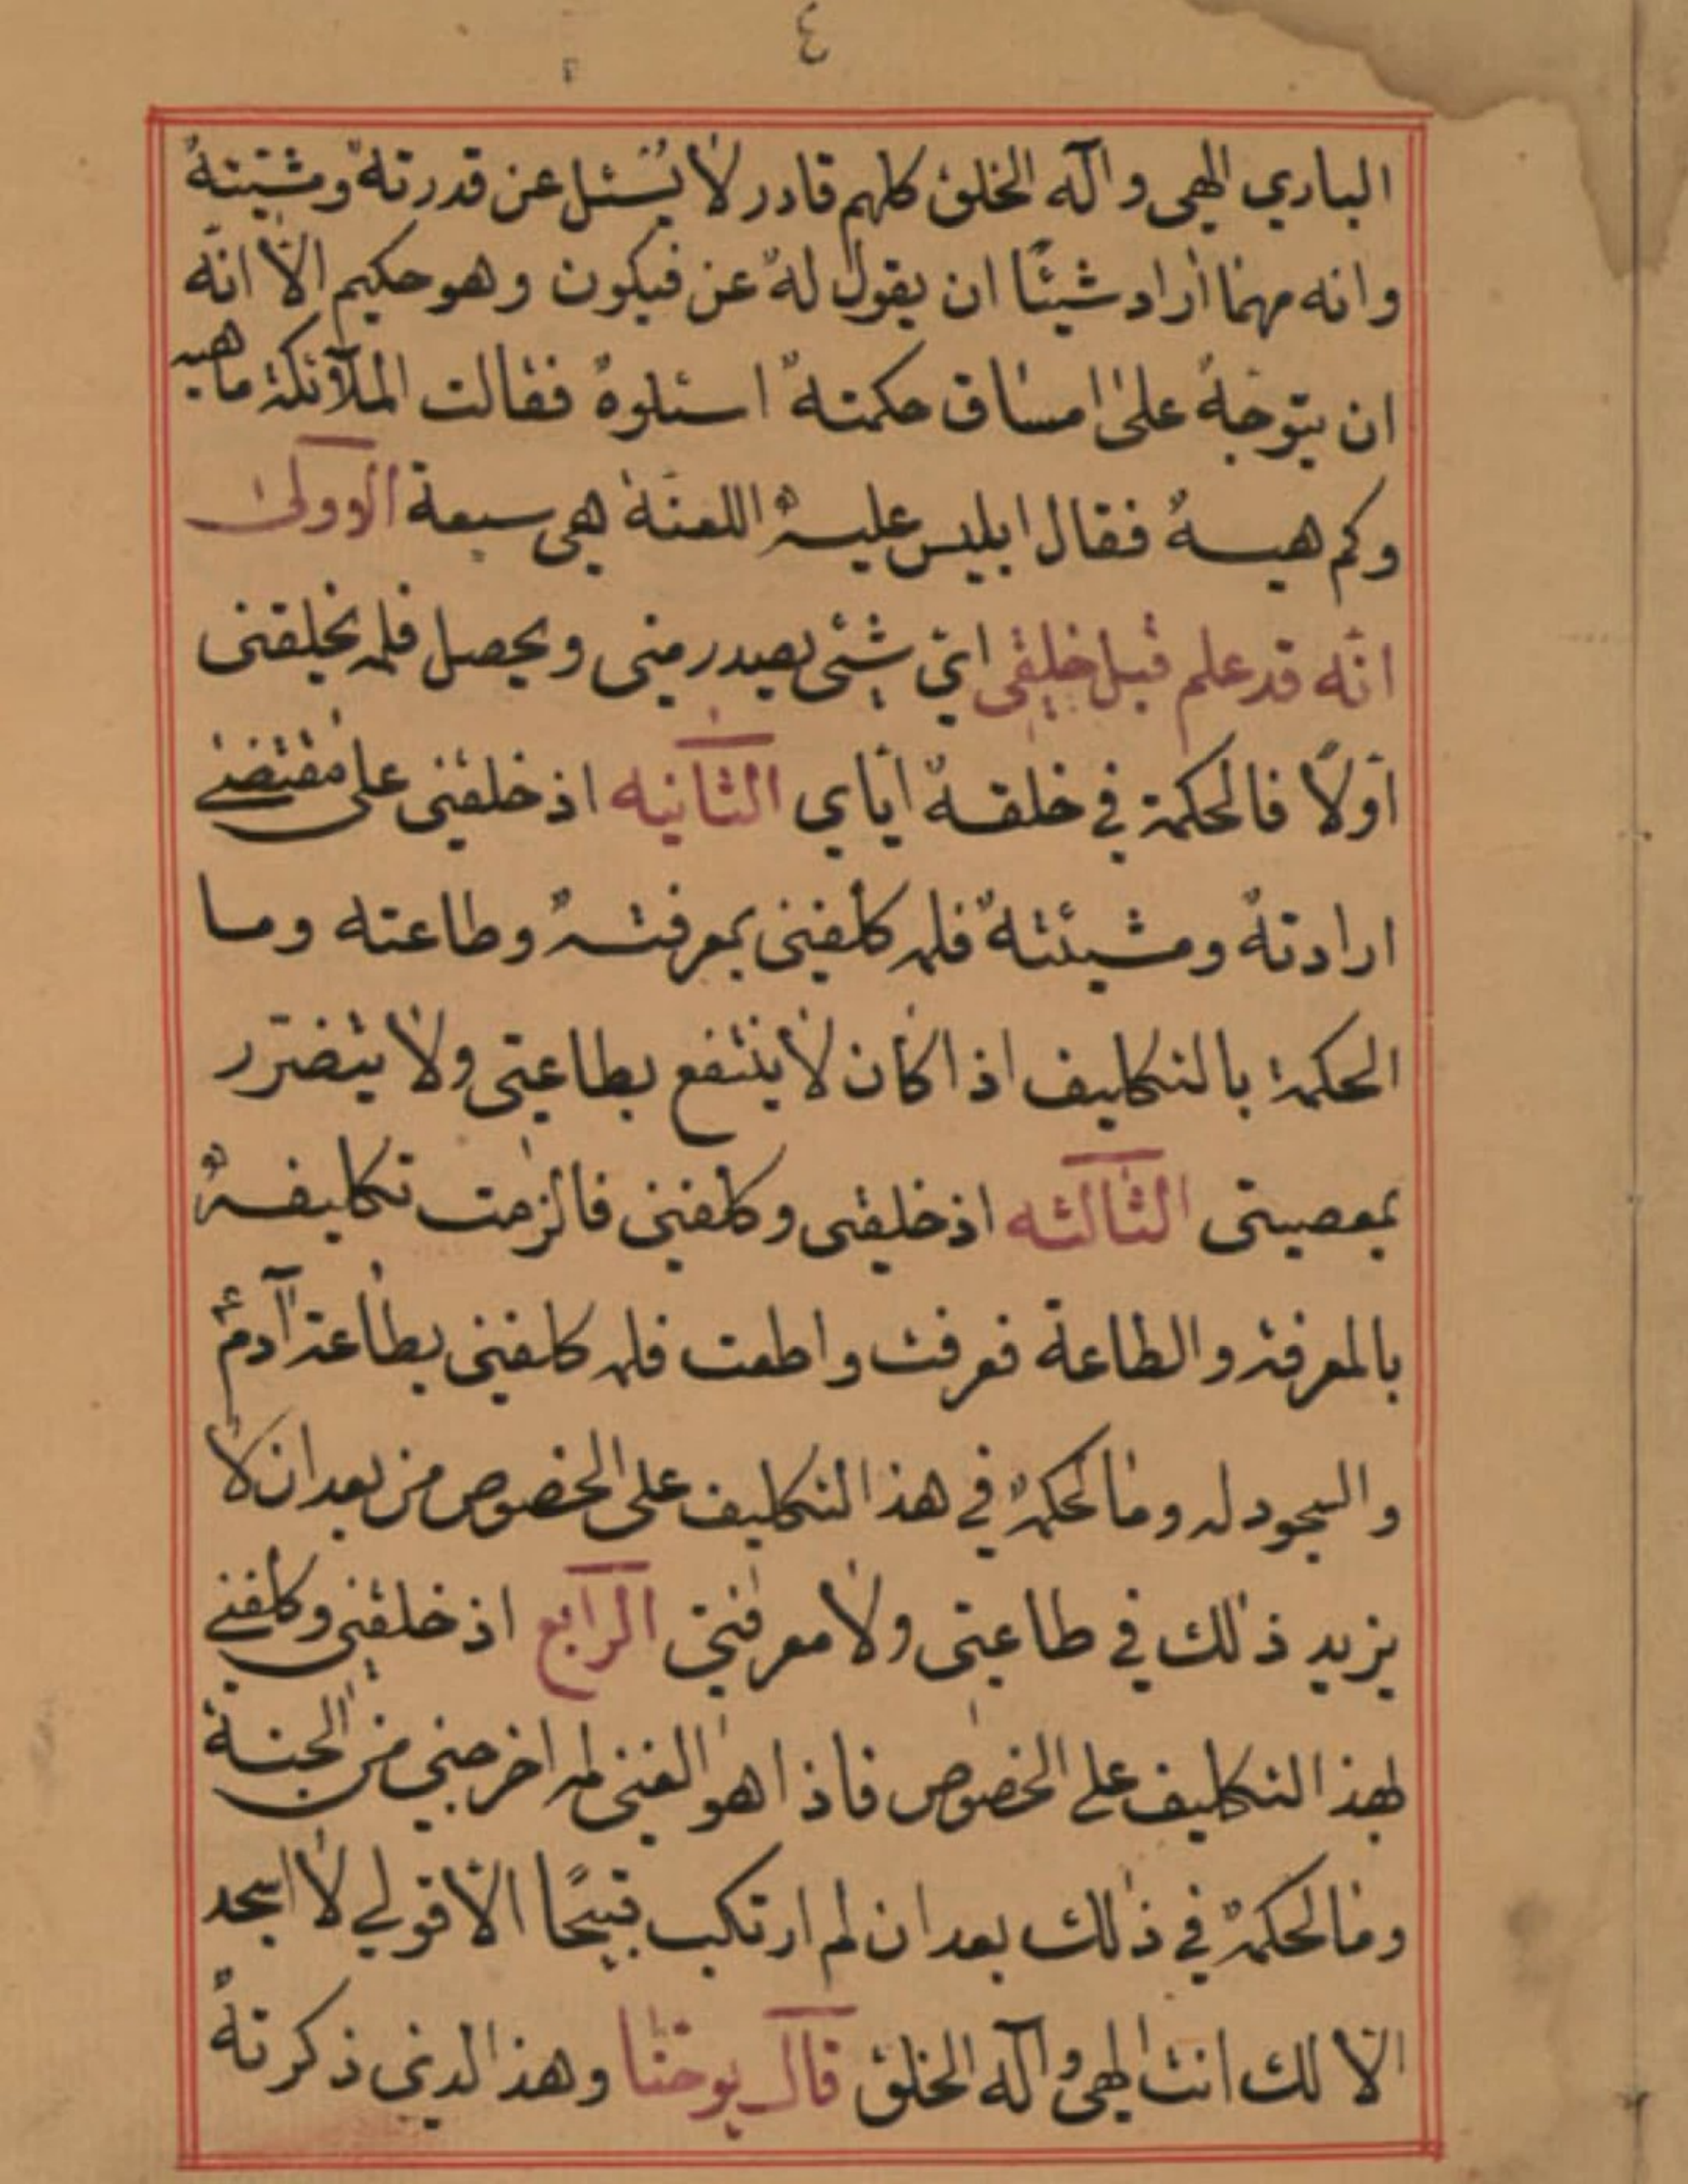 ٤
الباري الهي وآله الخلق كلهم قادر لا يُسئل عن قدرتهُ ومشيتهُ
وانه مهما اراد شيئًا ان يقول لهُ عن فيكون وهو حكيم الّا انّه
ان يتوجّهُ على امساق حكمتهُ اسئلوهٌ فقالت الملآئكة ماهيه
وكم هيهٌ فقال ابليس عليهٌ اللعنة هي سبعة الوولى
انّه قد علم قبل خلقي ايّ شئي يصدر مني ويحصل فلم يخلقني
اولًا فالحكمة في خلقهٌ ايّاي الثانيه اذ خلقني على مقتضى
ارادتهٌ ومشيئتهٌ فلم كلفني بمعرفتهٌ وطاعته وما
الحكمة بالتكليف اذا كان لا ينتفع بطاعتي ولا يتضرّر
بمعصيتي الثالثه اذ خلقني وكلفني فالزمت تكليفهٌ
بالمعرفة والطاعة فعرفت واطعت فلم كلفني بطاعة آدم
والسجود له ومالحكمهٌ في هذ التكليف على الخصوص من بعد ان لا
يزيد ذلك في طاعتي ولا معرفتي الرابع اذ خلقني وكلفني
لهذ التكليف على الخصوص فاذا هو الغني لم اخرجني من الجنة
ومالحكمهٌ في ذلك بعد ان لم ارتكب قبيحًا الّا قولي لا اسجد
الّا لك انت الهي وآله الخلق قال يوحنا وهذ الدي ذكرتهُ